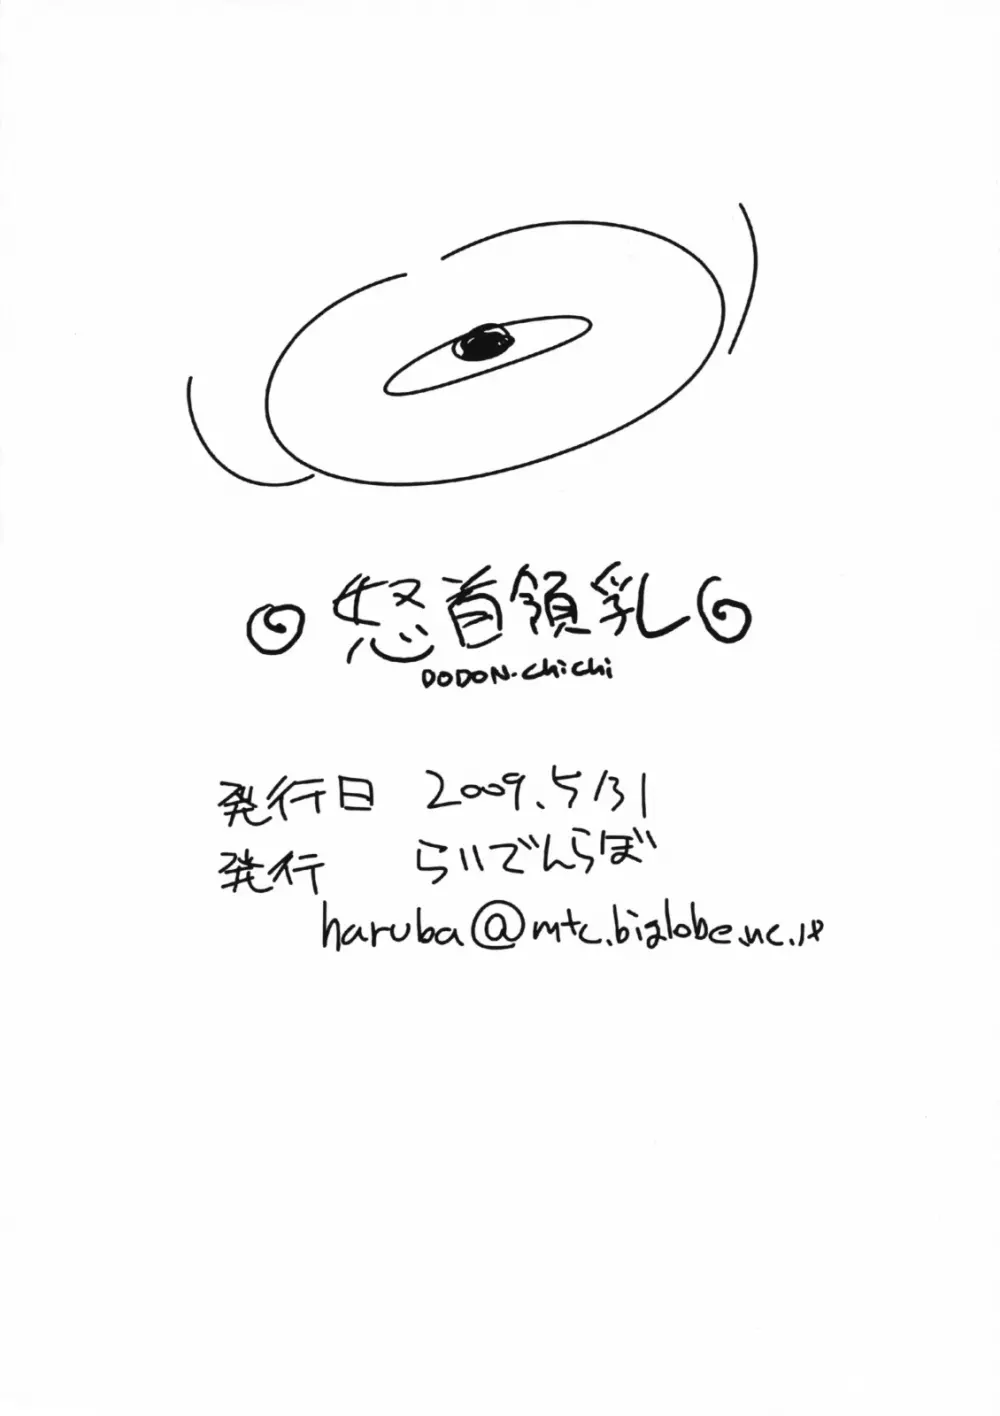 怒首領乳
DODON-chichi
発行日 2009.5/31
発行 らいでんらぼ
haruba@mtc.biglobe.ne.jp